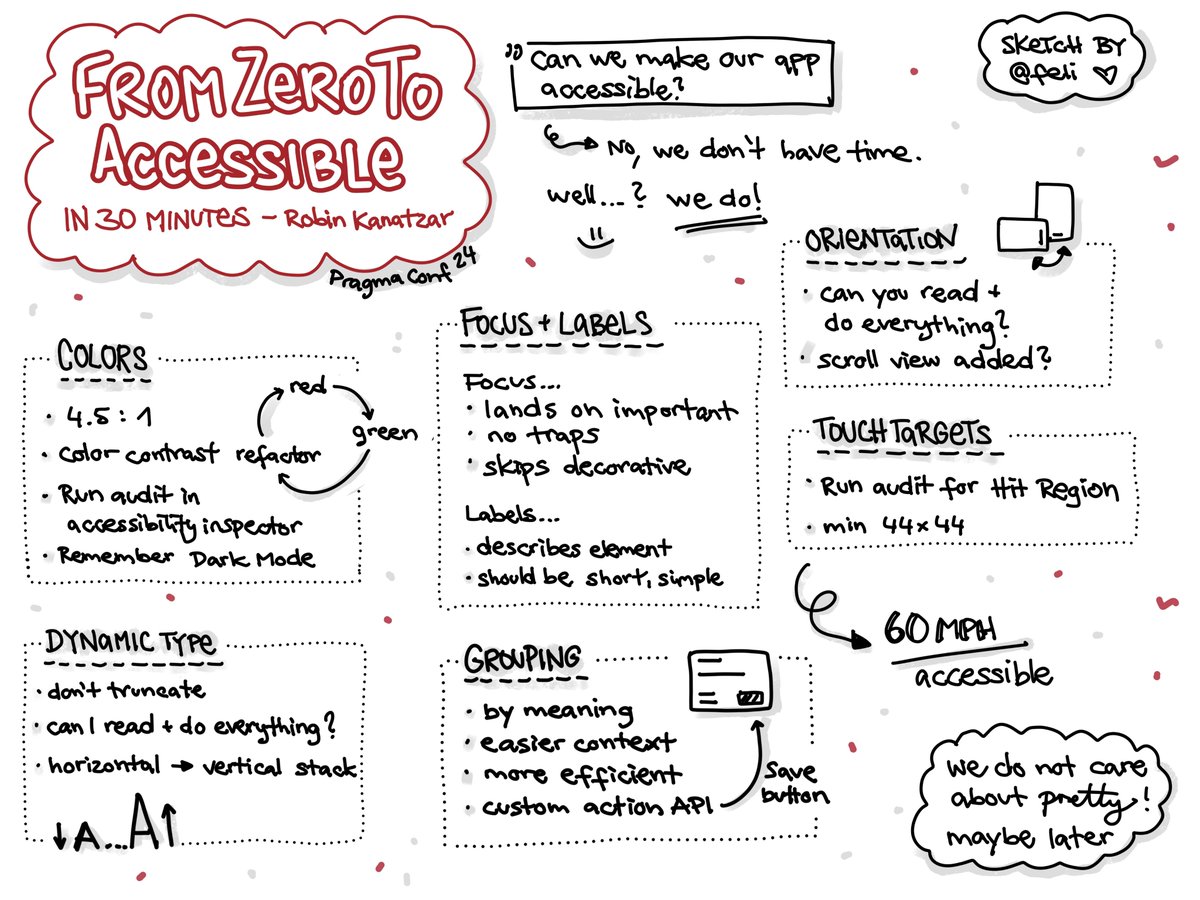 FROM ZERO TO
ACCESSIBLE
IN 30 MINUTES - Robin Kanatzar
Pragma Conf 24
"can we make our app
accessible?
No, we don't have time.
well...? we do!
SKETCH BY
@feli
COLORS
• 4.5 : 1
• color contrast
• Run audit in
accessibility inspector
• Remember Dark Mode
red
green
refactor
DYNAMIC TYPE
• don't truncate
• can I read + do everything?
• horizontal → vertical stack
↓A...A↑
FOCUS + LABELS
Focus...
• lands on important
• no traps
• skips decorative
Labels...
• describes element
• should be short, simple
GROUPING
• by meaning
• easier context
• more efficient
• custom action API
Save
button
ORIENTATION
• can you read +
do everything?
• scroll view added?
TOUCH TARGETS
• Run audit for Hit Region
• min 44x44
60 MPH
accessible
we do not care
about pretty!
maybe later